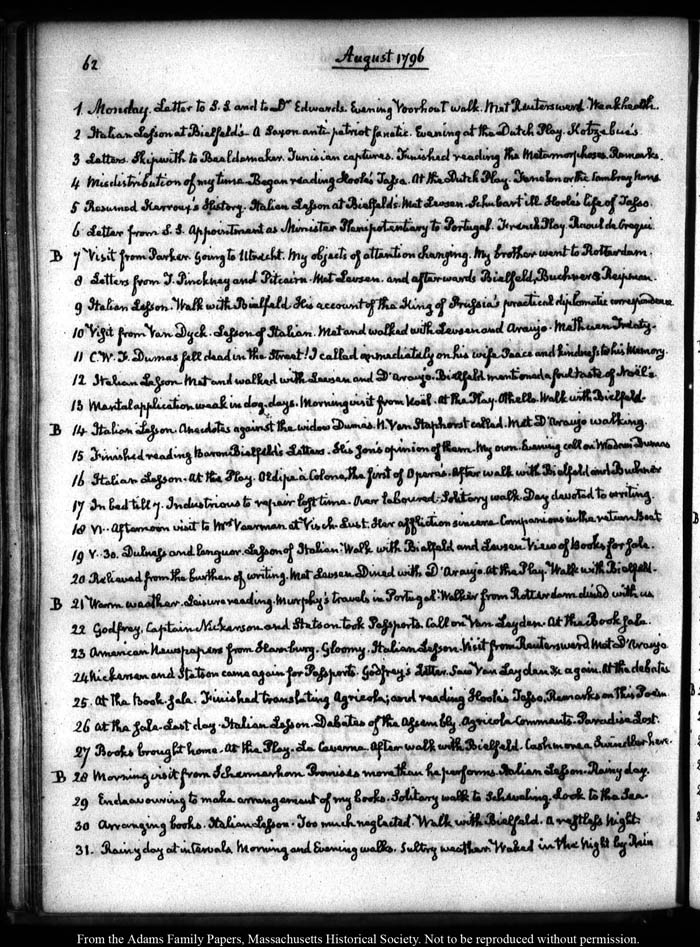 62
August 1796
1 Monday. Letter to S. S. and to Dr Edwards. Evening Voorhout walk. Met Reutersward Weak health.
2 Italian Lesson at Bielfeld's. A Saxon anti patriot fanatic. Evening at the Dutch Play. Kotzebue's.
3 Letters. Skipwith to Baaldemaker. Tunisian captures. Finished reading the Metamorphoses Remarks.
4 Misdistribution of my time. Began reading Hoole's Tasso. At the Dutch Play. Fenelon or the Cambray Nuns
5 Resumed Harroux's History. Italian Lesson at Bielfeld's. Met Levsen. Schubart ill. Hoole's life of Tasso.
6 Letter from S. S. Appointment as Minister Plenipotentiary to Portugal. French Play. Raoul de Crequi
B 7 Visit from Parker. Going to Utrecht. My objects of attention changing. My brother went to Rotterdam.
8 Letters from T. Pinckney and Pitcairn. Met Levsen. and afterwards Bielfeld, Buchner &
9 Italian Lesson. Walk with Bielfeld. His account of the King of Prussia's practical diplomatic correspondence
10 Visit from Van Dyck. Lesson of Italian. Met and walked with Levsen and Araujo. Methuen Treaty.
11 C. W. F. Dumas fell dead in the Street! I called immediately on his wife. Peace and kindness to his Memory.
12 Italian Lesson. Met and walked with Levsen and D'Araujo. Bielfeld mentioned a foul taste of Noël's.
13 Mental application weak in dog days. Morning visit from Noël. At the Play. Othello. Walk with Bielfeld.
B 14 Italian Lesson. Anecdotes against the widow Dumas. N. Van Staphorst called. Met D'Araujo walking.
15 Finished reading Baron Bielfeld's Letters. His Son's opinion of them. My own. Evening call on Madam Dumas
16 Italian Lesson. At the Play. Oldipe à Colone, the first of Opera's. After walk with Bielfeld and Buchner
17 In bed till 7. Industrious to repair lost time. Over laboured. Solitary walk. Day devoted to writing.
18 VI. Afternoon visit to Mrs Veerman at Visch Lust. Her affliction sincere. Companions in the return Boat
19 V. 30. Dulness and languor. Lesson of Italian. Walk with Bielfeld and Levsen. View of Books for sale.
20 Relieved from the burthen of writing. Met Levsen. Dined with D'Araujo. At the Play. Walk with Bielfeld.
B 21 Warm weather. Leisure reading. Murphy's travels in Portugal. Walker from Rotterdam dined with us
22 Godfrey, Captain Nickerson and Stetson took Passports. Call on Van Leyden. At the Book Sale.
23 American Newspapers from Hamburg. Gloomy. Italian Lesson. Visit from Reutersward Met D'Araujo
24 Nickerson and Stetson came again for Passports. Godfrey's Letter. Saw Van Leyden &c again. At the debates
25. At the Book Sale. Finished translating Agricola; and reading Hoole's Tasso, Remarks on this Poem.
26 At the Sale. Last day. Italian Lesson. Debates of the Assembly. Agricola Comments. Paradise Lost.
27 Books brought home. At the Play. La Caverne. After walk with Bielfeld. Cashmore a Swindler here.
B 28 Morning visit from Schermerhorn. Promises more than he performs. Italian Lesson. Rainy day.
29 Endeavouring to make arrangement of my books. Solitary walk to Scheveling. Look to the Sea
30 Arranging books. Italian Lesson. Too much neglected. Walk with Bielfeld. A restless Night.
31. Rainy day at intervals. Morning and Evening walks. Sultry weather. Waked in the Night by Rain
From the Adams Family Papers, Massachusetts Historical Society. Not to be reproduced without permission.